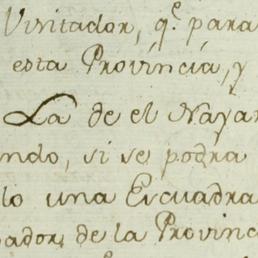 Visitador, q.e para
esta Província, y
La de el Nayar
ndo, si se podra
lo una Escuadra
ador, de la Provinc